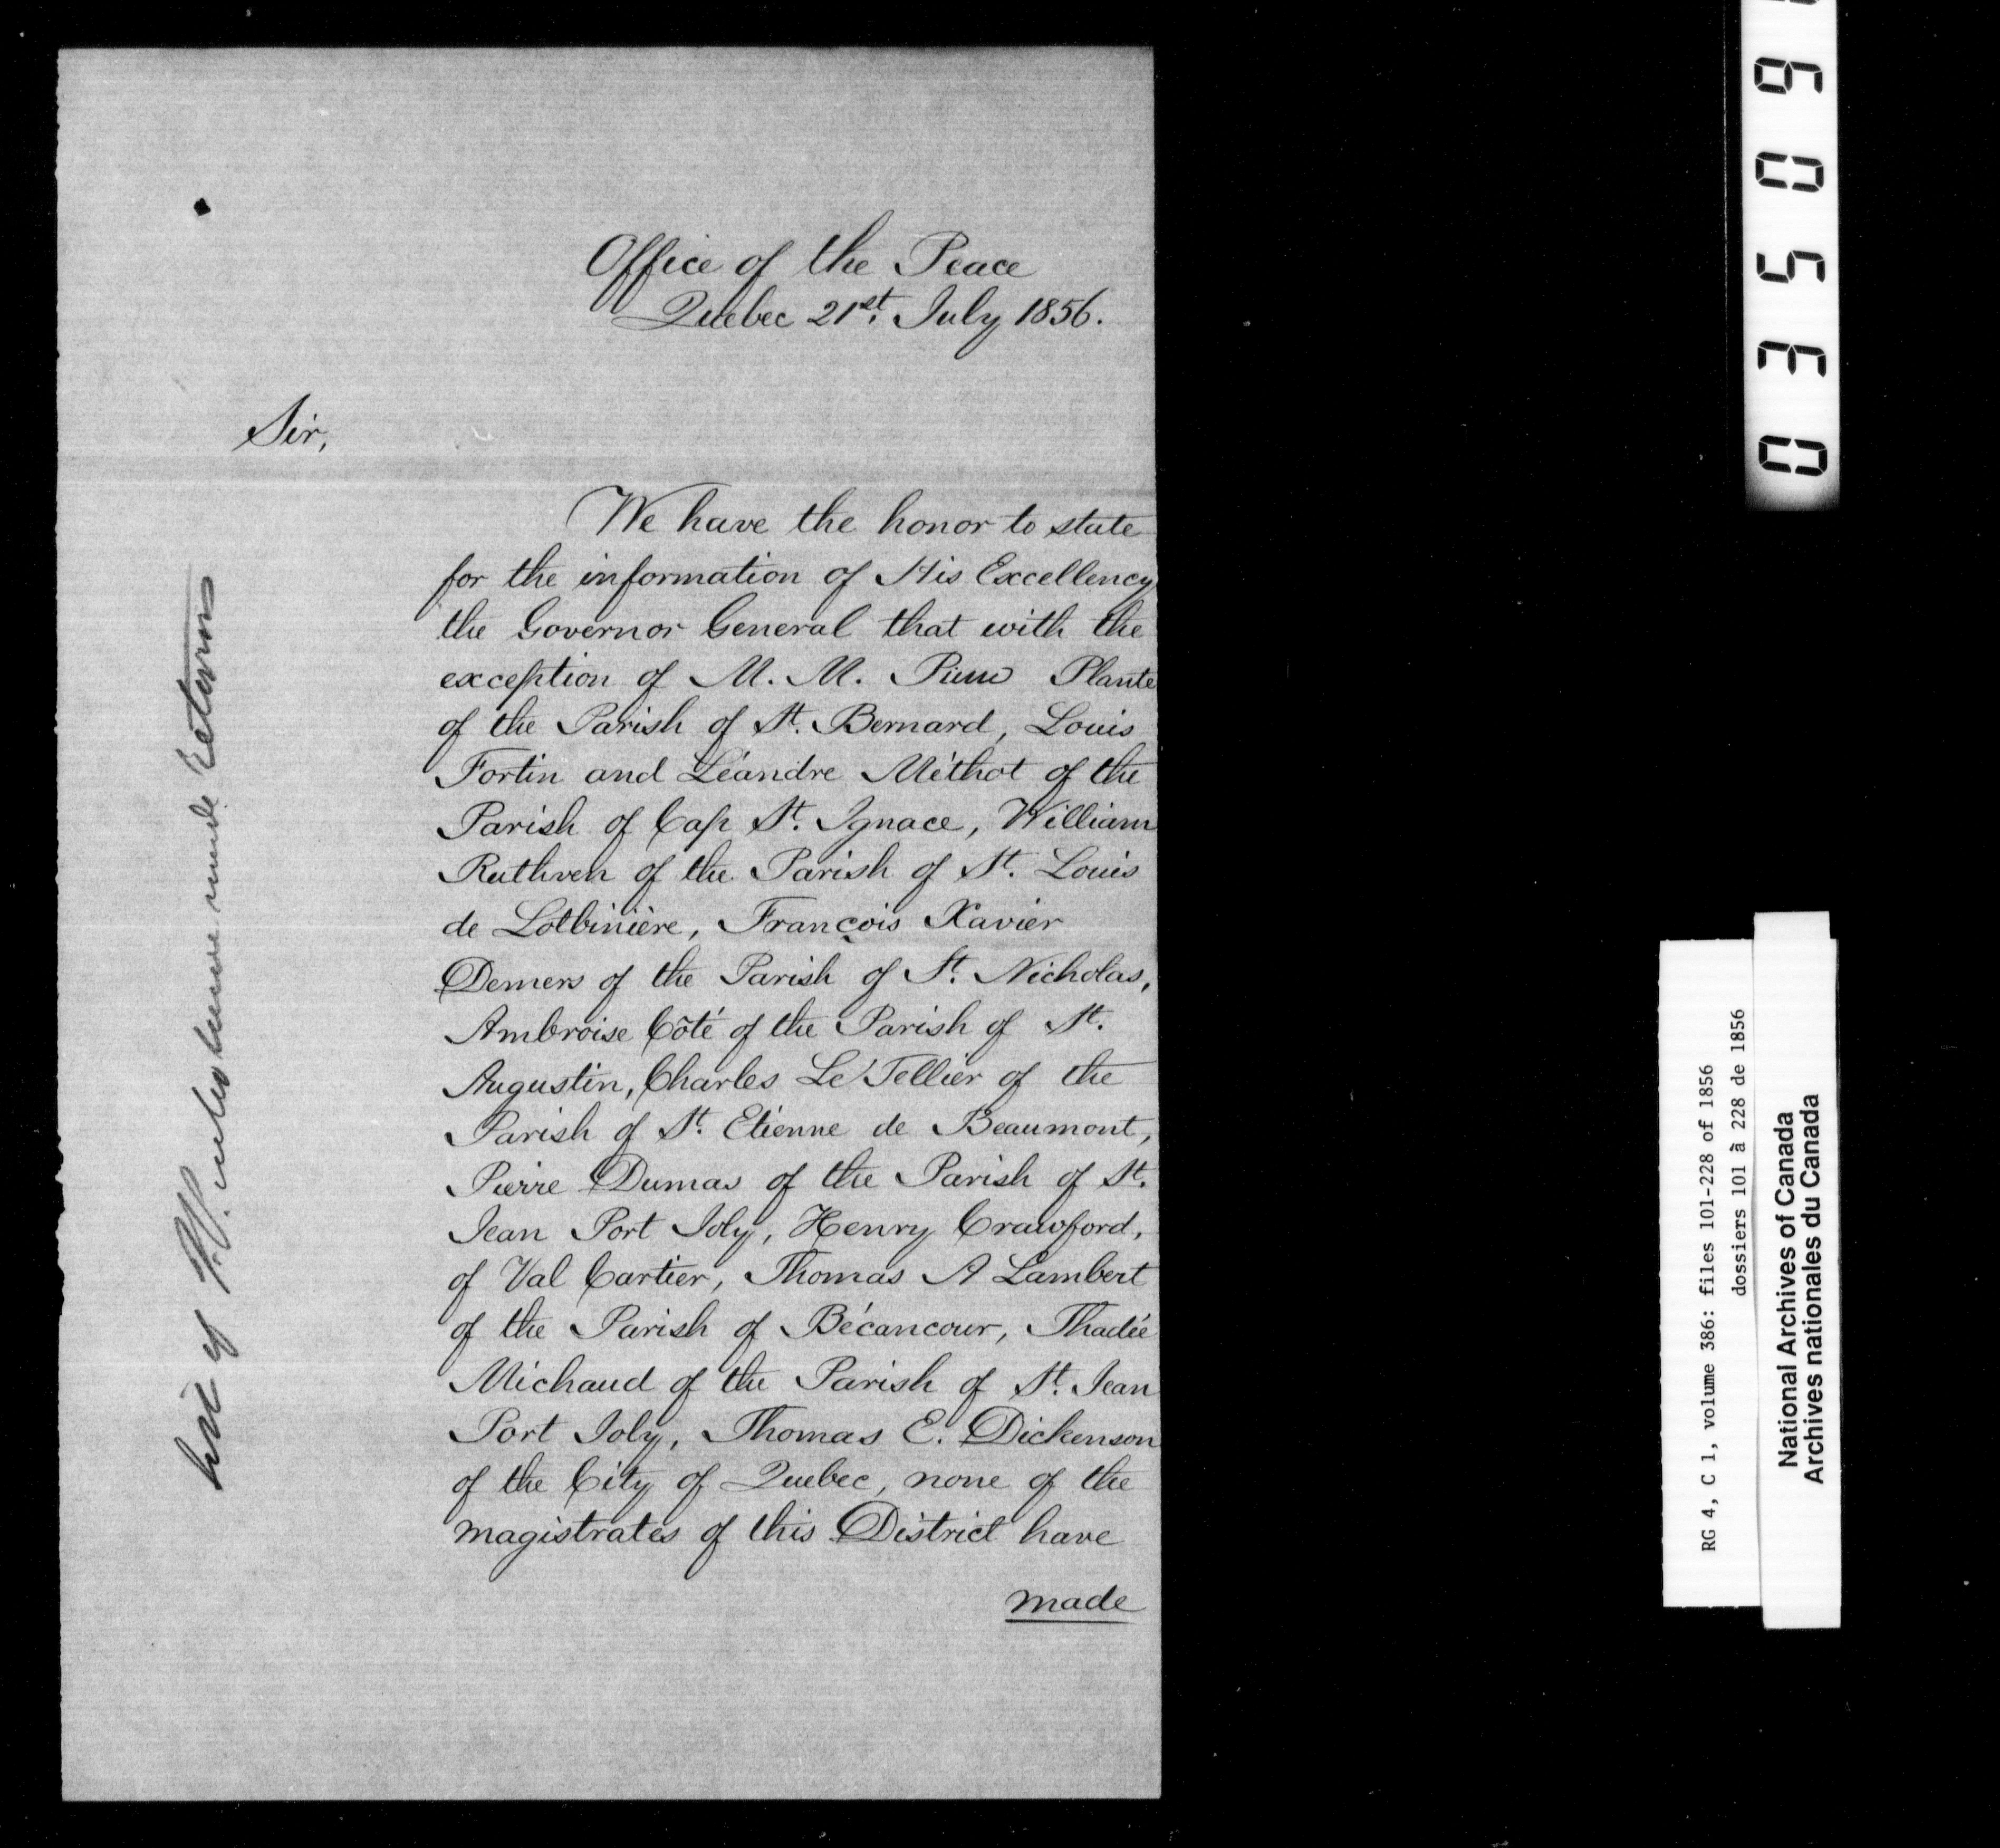 Office of the Peace
Quebec 21st. July 1856.
Sir,
We have the honor to state
for the information of His Excellency
the Governor General that with the
exception of M. M. Pierre Plante
of the Parish of St. Bernard, Louis
Fortin and Léandre Méthot of the
Parish of Cap St. Ignace, William
Ruthven of the Parish of St. Louis
de Lotbinière, François Xavier
Demers of the Parish of St. Nicholas,
Ambroise Côté of the Parish of St.
Augustin, Charles Le Tellier of the
Parish of St. Etienne de Beaumont,
Pierre Dumas of the Parish of St.
Jean Port Joly, Henry Crawford,
of Val Cartier, Thomas A Lambert
of the Parish of Bécancour, Thadée
Michaud of the Parish of St. Jean
Port Joly, Thomas E. Dickenson
of the City of Quebec, none of the
magistrates of this District have
made
List of J.P. who have made Returns
0 3 5 0 9
RG 4, C 1, volume 386: files 101-228 of 1856
dossiers 101 à 228 de 1856
National Archives of Canada
Archives nationales du Canada